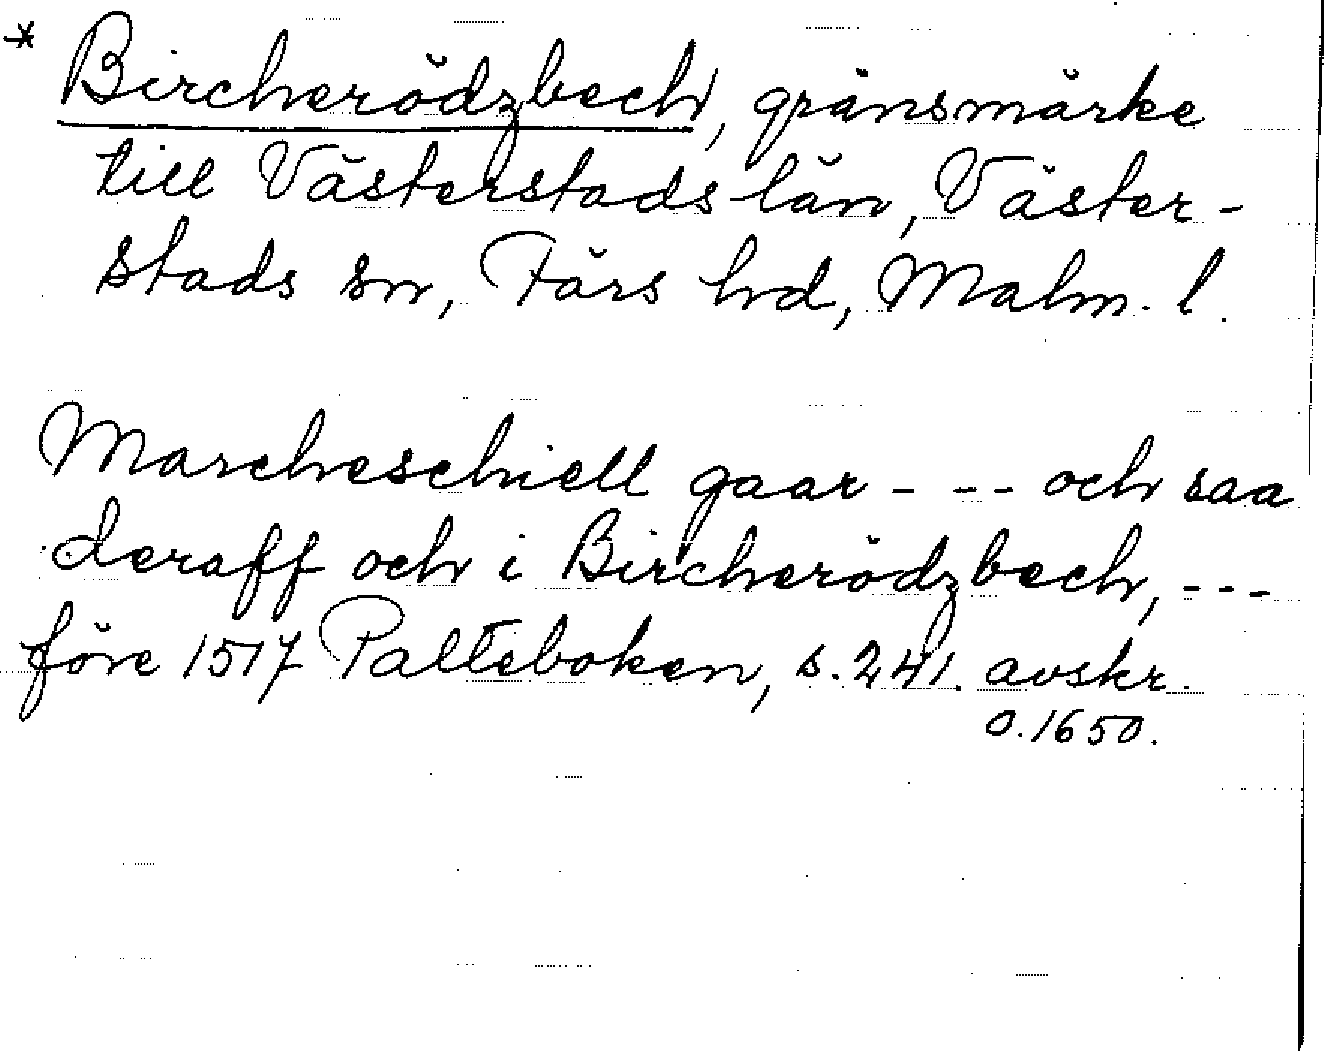 * Bircherödzbech, gränsmärke
till Västerstads län, Väster-
stads sn, Färs hd, Malm. l.
Marcheschiell gaar - - - och saa
deraff och i Bircherödzbech, - - -
före 1517 Palteboken, s. 241. avskr.
o. 1650.